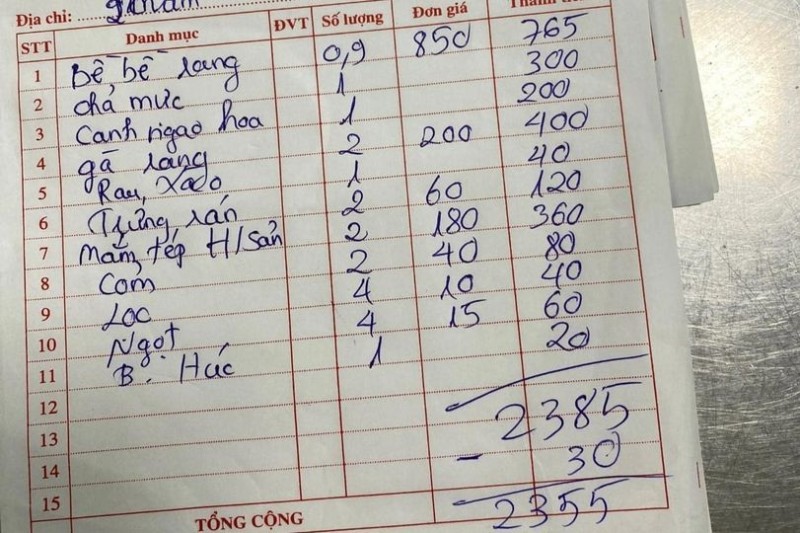 Địa chỉ:
STT Danh mục ĐVT Số lượng Đơn giá
1 Bề bề rang 0,9 850 765
2 chả mực 1 300
3 Canh ngao hoa 1 200
4 gà rang 2 200 400
5 Rau xào 1 40
6 Trứng rán 2 60 120
7 Mắm tép H/Sản 2 180 360
8 Cơm 2 40 80
9 Lọc 4 10 40
10 Ngọt 4 15 60
11 B. Húc 1 20
12 2385
13
14 - 30
15 2355
TỔNG CỘNG